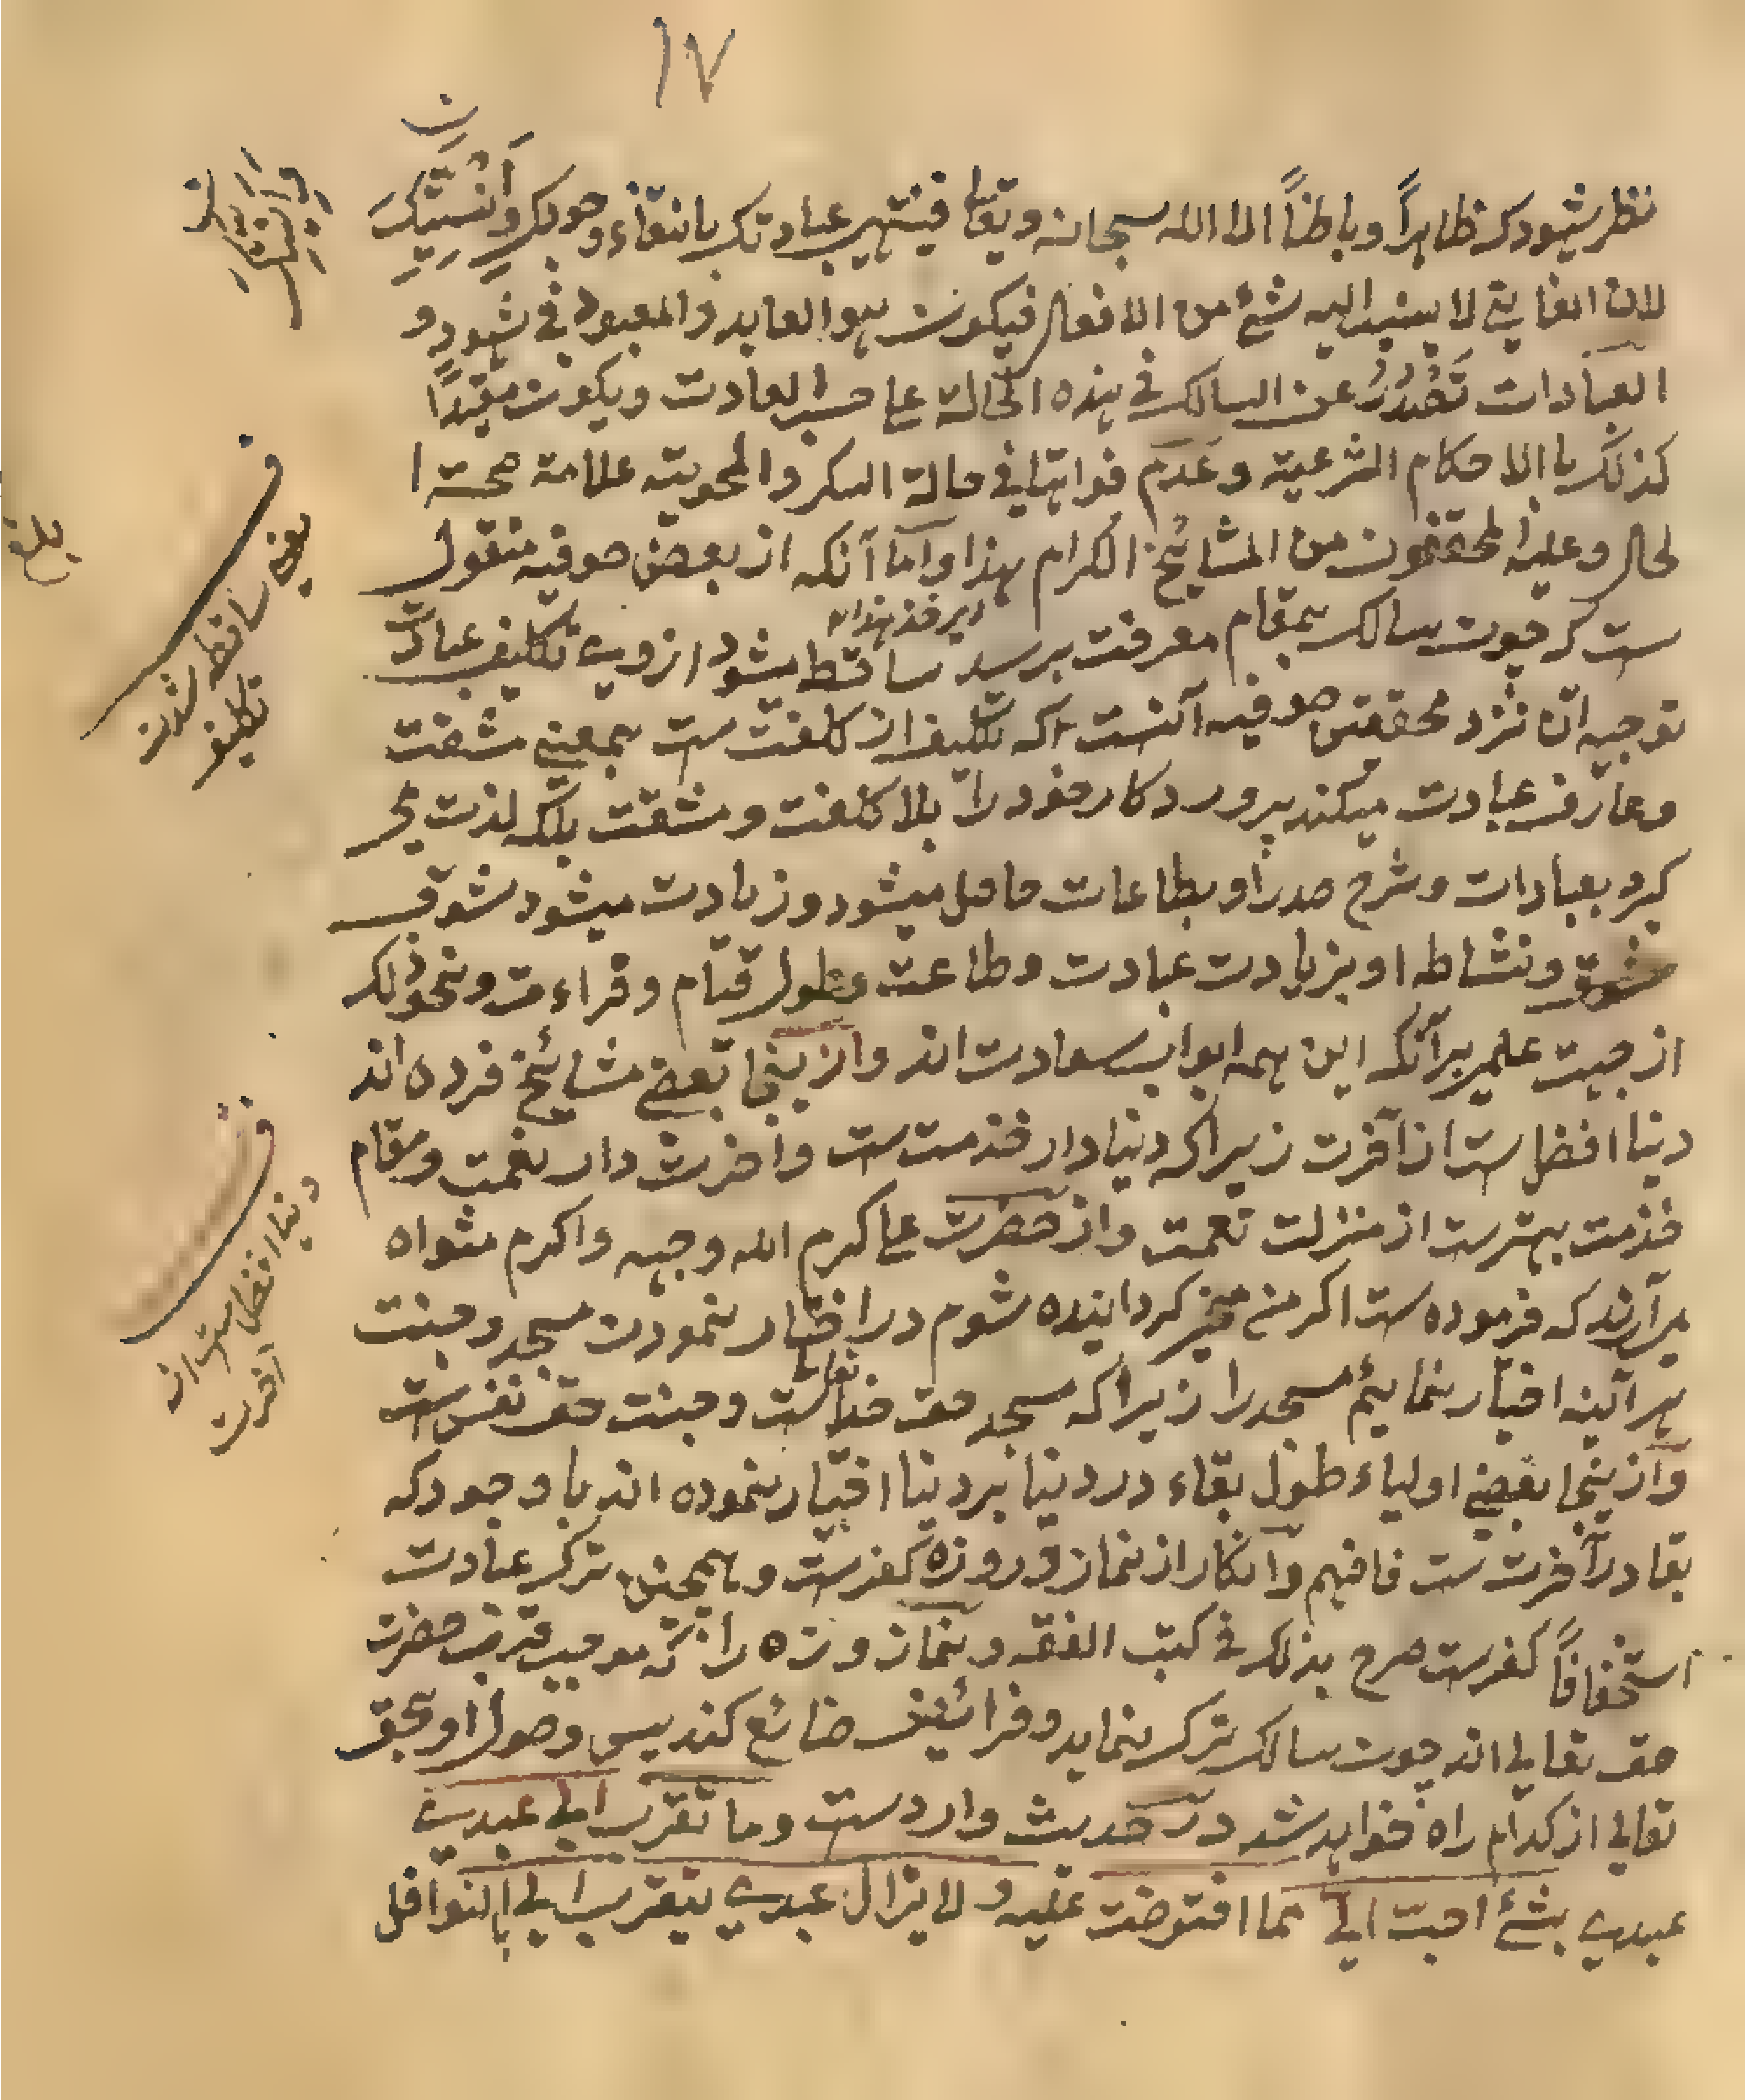 ١٧
نظر شهودک ظاهراً وباطناً الا الله سبحانه وتعا فینتهی عبادتک بانتفاء وجودک وانّیّتک
لان الفانی لا یسند الیه شئ من الافعال فیکون هو العابد والمعبود فی شهوده و
العبادات تَصْدُرُ عن السالک فی هذه الحالة علی حسب العادت ویکون مقیداً
کذلک بالاحکام الشرعیة وعَدَم فواتها فی حالة السکر والمحویة علامة صحة ا
لحال وعلیه المحققون من المشائخ الکرام هذا واما آنکه از بعض صوفیه منقول
ست که چون سالک بمقام معرفت برسد ساقط میشود از وی تکلیف عبادت
توجیه ان نزد محققین صوفیه آنست که تکلیف از کلفت ست بمعنی مشقت
وعارف عبادت میکند پروردکار خود را بلا کلفت ومشقت بلکه لذت می
کیرد بعبادات وشرح صدر او بطاعات حاصل میشود وزیادت میشود شوق
شوق ونشاط او بزیادت عبادت وطاعت وطول قیام وقراءت ونحو ذلک
از جهت علمی برآنکه این همه ابواب سعادت اند واز ینجا بعضی مشائخ فرده اند
دنیا افضل ست از آخرت زیرا که دنیا دار خدمت ست واخرت دار نعمت ومقام
خدمت بهتر ست از منزلت نعمت واز حضرت علی کرم الله وجهه واکرم مثواه
می آرند که فرموده ست اکر من مخیر کردانیده شوم در اختیار نمودن مسجد وجنت
هر آئینه اختیار نمایئم مسجد را زیرا که مسجد حق خدا تعالی ست وجنت حق نفس ست
وازینجا بعضی اولیاء طول بقاء در دنیا بر دنیا اختیار نموده اند با وجودکه
بقا در آخرت ست فافهم وانکار از نماز وروزه کفر ست وهمچنین ترک عبادت
استخفافاً کفر ست صرح بذلک فی کتب الفقه ونماز وزه را که موجب قرب حضرت
حق تعالی اند چون سالک ترک نماید وفرائض ضائع کند پس وصول او بحق
تعالی از کدام راه خواهد شد در حدیث وارد ست وما تقرب الی عبدی
عبدی بشئ احب الی مما افترضت علیه ولا یزال عبدی یتقرب الی بالنوافل
ف
معنی ساقط شدن
تکلیف
بلغ
ف
دنیا افضل ست از
آخرت